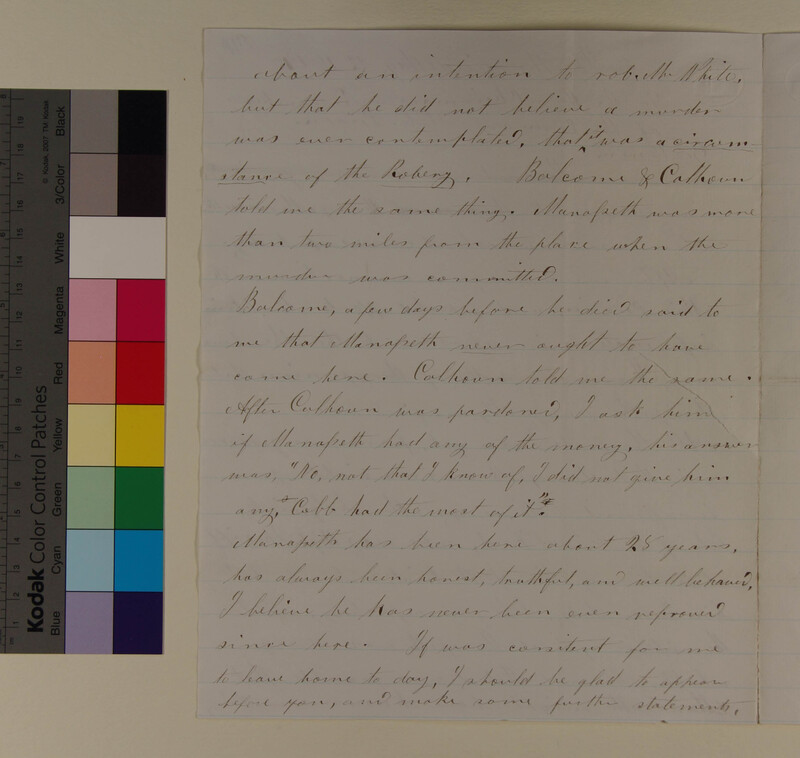 about an intention to rob Mr White,
but that he did not believe a murder
was ever contemplated, that it was a circum-
stance of the Robery. Balcome & Calhoun
told me the same thing. Manaſseth was more
than two miles from the place when the
murder was committed.
Balcome, a few days before he died said to
me that Manaſseth never ought to have
come here. Calhoun told me the same.
After Calhoun was pardoned, I ask him
if Manaſseth had any of the money, his answer
was, "No, not that I know of, I did not give him
any, Cobb had the most of it."
Manaſseth has been here about 25 years,
has always been honest, truthful, and well behaved,
I believe he has never been even reproved
since here. If was consitent for me
to leave home to day, I should be glad to appear
before you, and make some further statements,
Kodak Color Control Patches
© Kodak, 2007 TM: Kodak
Blue Cyan Green Yellow Red Magenta White 3/Color Black